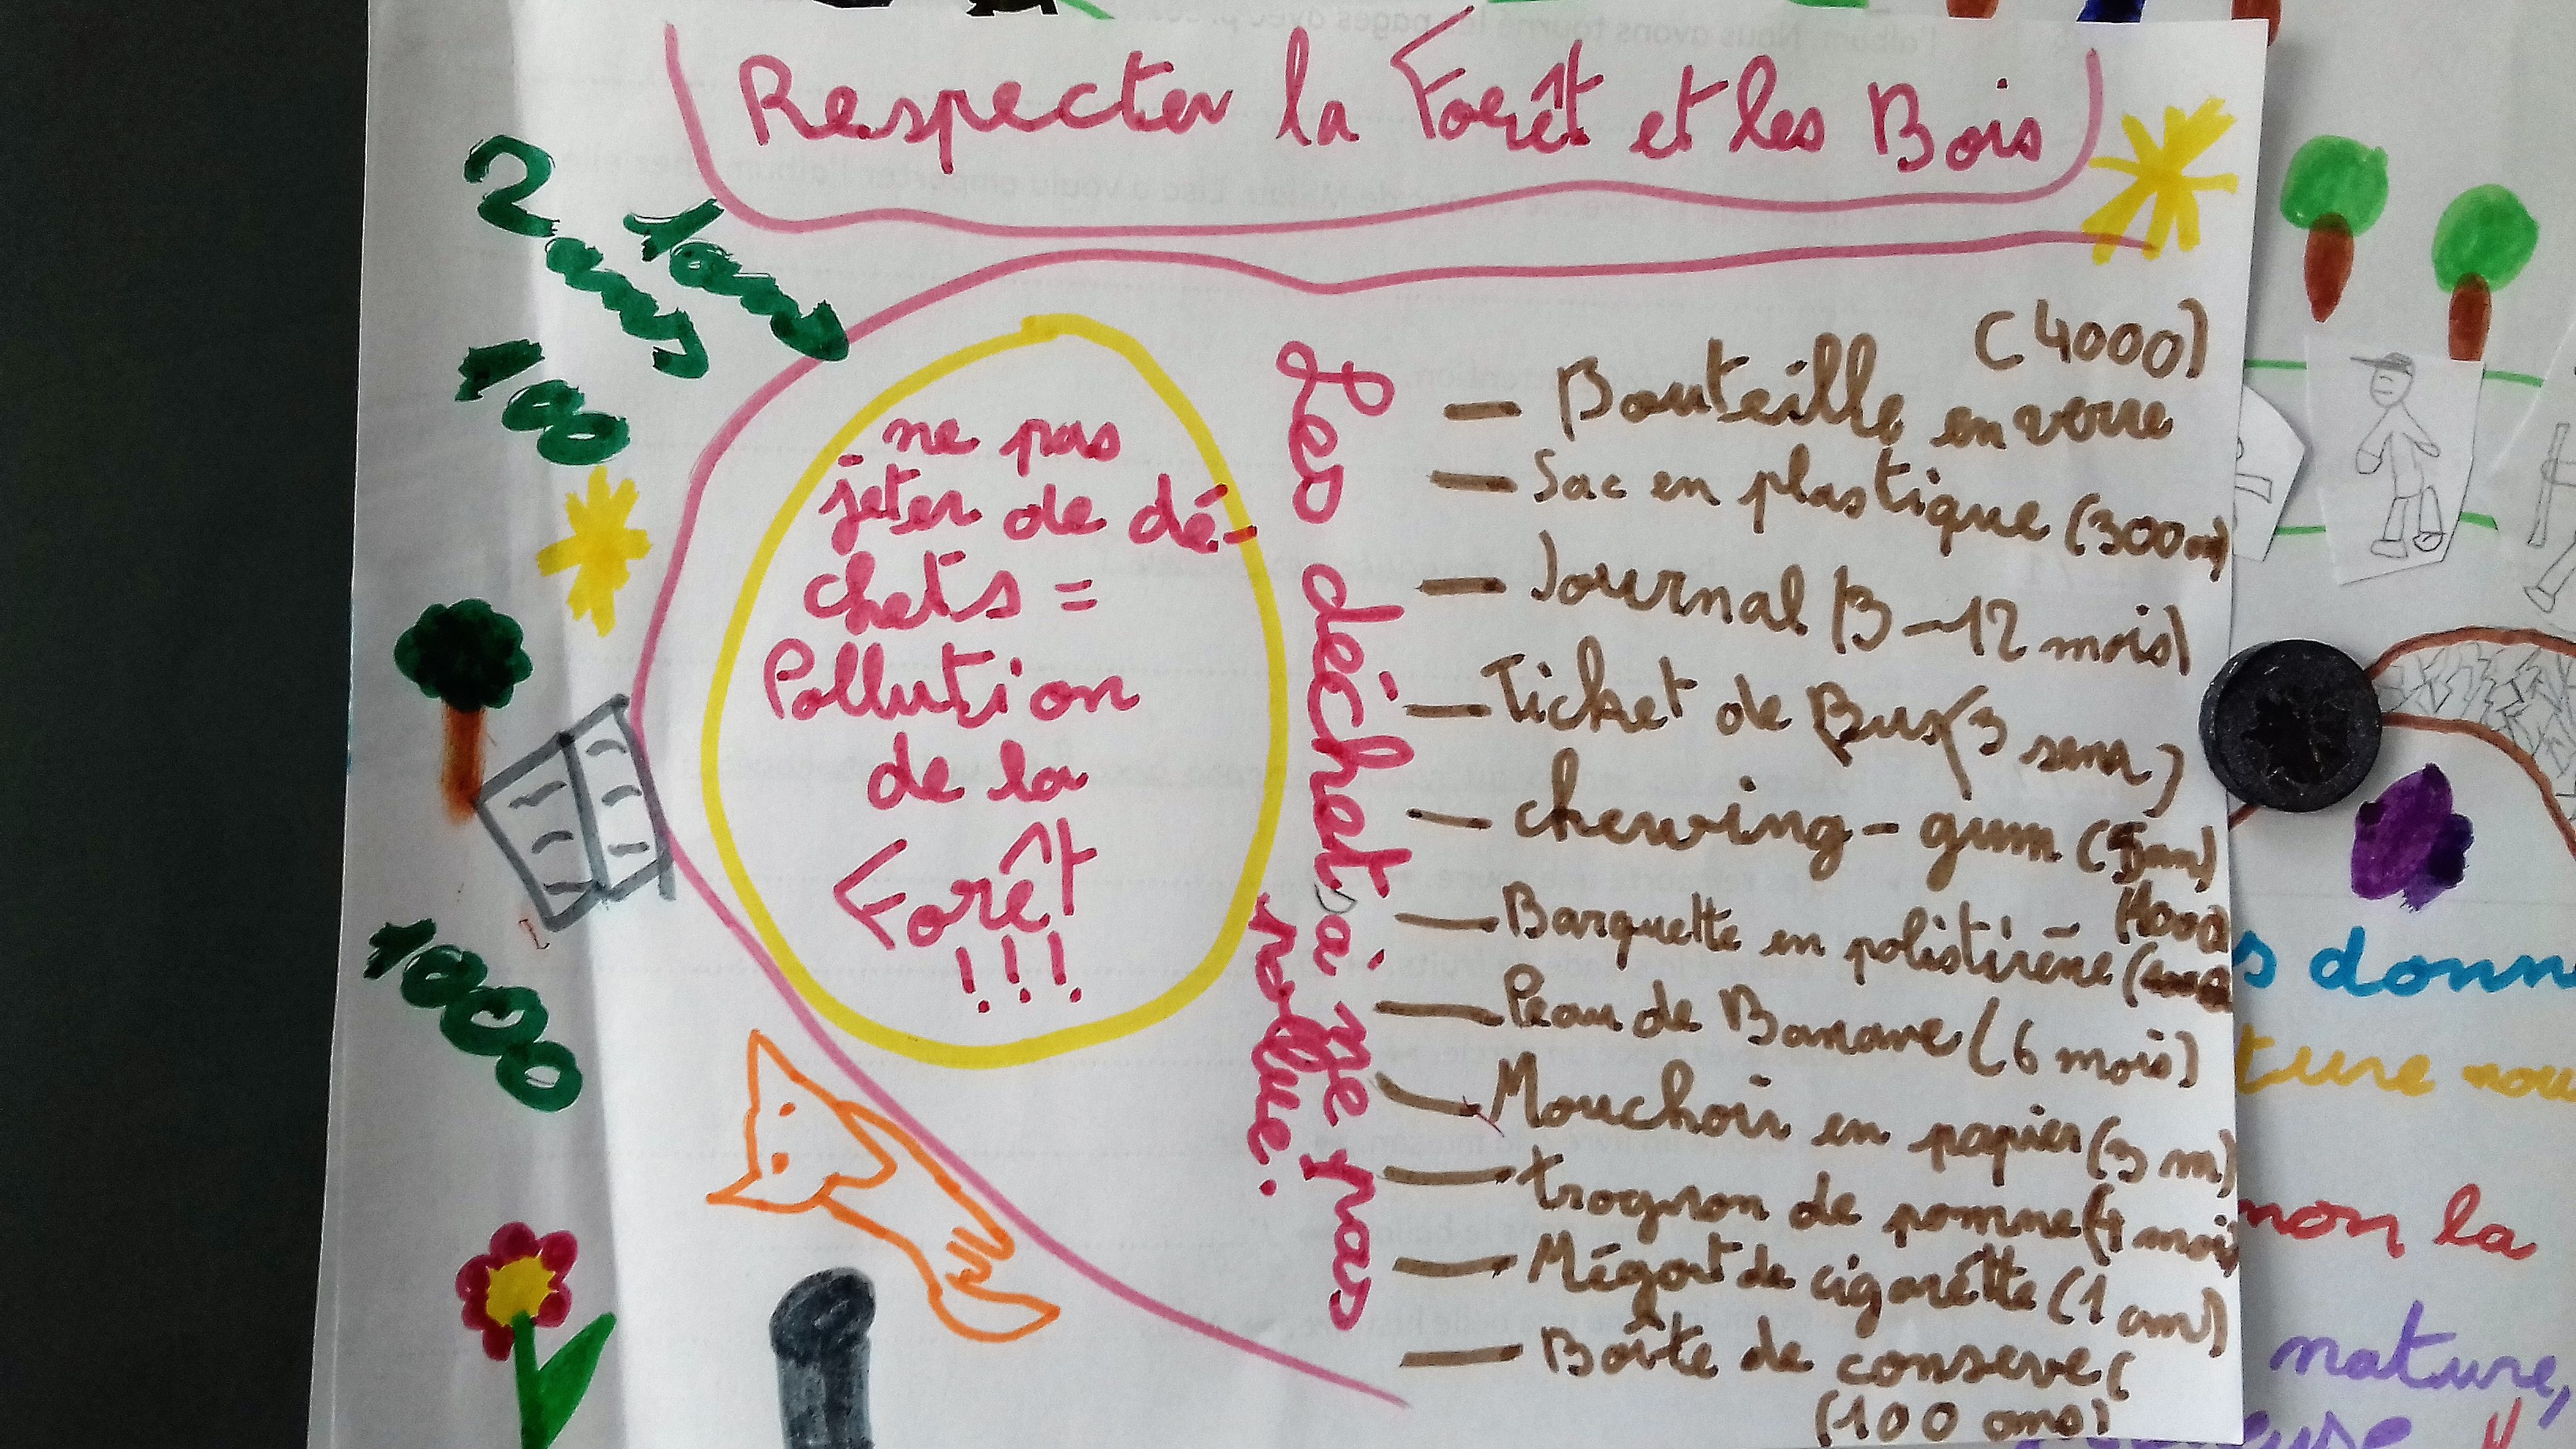 Respecter la Forêt et les Bois
2 ans
1 an
100
1000
ne pas
jeter de dé-
chets =
Pollution
de la
Forêt
!!!
Les déchet à ne pas
pollué.
(4000)
— Bouteille en verre
— Sac en plastique (300 an)
— Journal (3-12 mois)
— Ticket de Bus (3 sem)
— chewing-gum (5 an)
(1000
— Barquette en polistirène (
— Peau de Banane (6 mois)
— Mouchoir en papier (3 m)
— trognon de pomme (4 mois
— Mégot de cigarêtte (1 an)
— Boîte de conserve (
(100 ans)
s donn
ture nou
non la
nature,